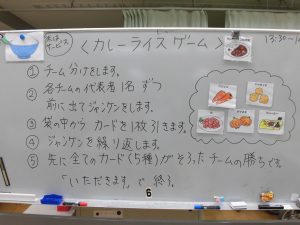 水は
サービス
〈カレーライスゲーム〉
13:30~1
① チーム分けをします。
② 各チームの代表者1名ずつ
前に出てジャンケンをします。
③ 袋の中からカードを1枚引きます。
④ ジャンケンを繰り返します。
⑤ 先に全てのカード(5種)がそろったチームの勝ちです。
「いただきます。」で終了。
6